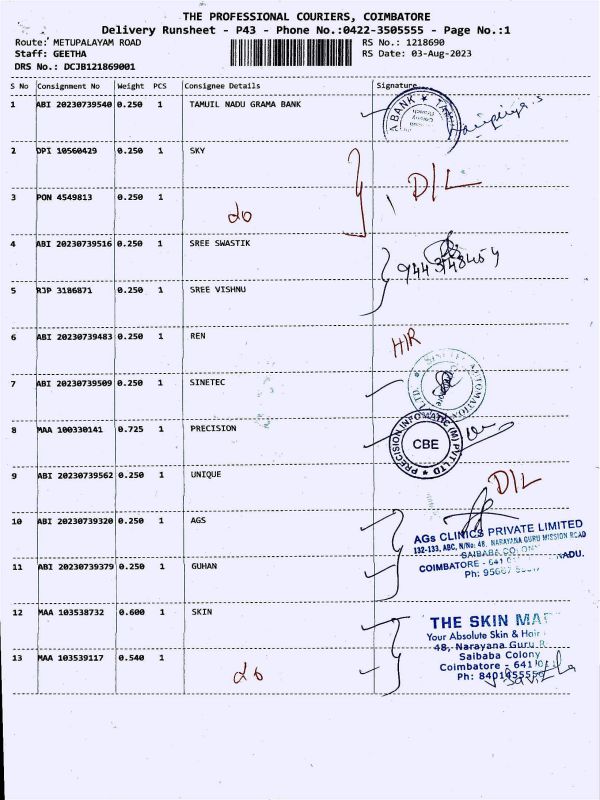 THE PROFESSIONAL COURIERS, COIMBATORE
Delivery Runsheet - P43 - Phone No.:0422-3505555 - Page No.:1
Route: METUPALAYAM ROAD
RS No.: 1218690
Staff: GEETHA
RS Date: 03-Aug-2023
DRS No.: DCJB121869001
S No Consignment No Weight PCS Consignee Details Signature
1 ABI 20230739540 0.250 1 TAMUIL NADU GRAMA BANK
ABANK ★ TAMI
2 DPI 10560429 0.250 1 SKY
D/L
3 PON 4549813 0.250 1
do
4 ABI 20230739516 0.250 1 SREE SWASTIK
5 RJP 3186871 0.250 1 SREE VISHNU
6 ABI 20230739483 0.250 1 REN
H/R
7 ABI 20230739509 0.250 1 SINETEC
SINETEC AUTOMATION LTD. ★
8 MAA 100330141 0.725 1 PRECISION
PRECISION INFOMATIC (M) PVT LTD
CBE
9 ABI 20230739562 0.250 1 UNIQUE
D/L
10 ABI 20230739320 0.250 1 AGS
AGs CLINICS PRIVATE LIMITED
132-133, ABC, N/No: 48, NARAYANA GURU MISSION ROAD
SAIBABA COLONY
COIMBATORE - 641 NADU.
Ph:
11 ABI 20230739379 0.250 1 GUHAN
12 MAA 103538732 0.600 1 SKIN
THE SKIN
Your Absolute Skin & Hair
48, Narayana Guru R
Saibaba Colony
Coimbatore - 641
Ph:
13 MAA 103539117 0.540 1
do